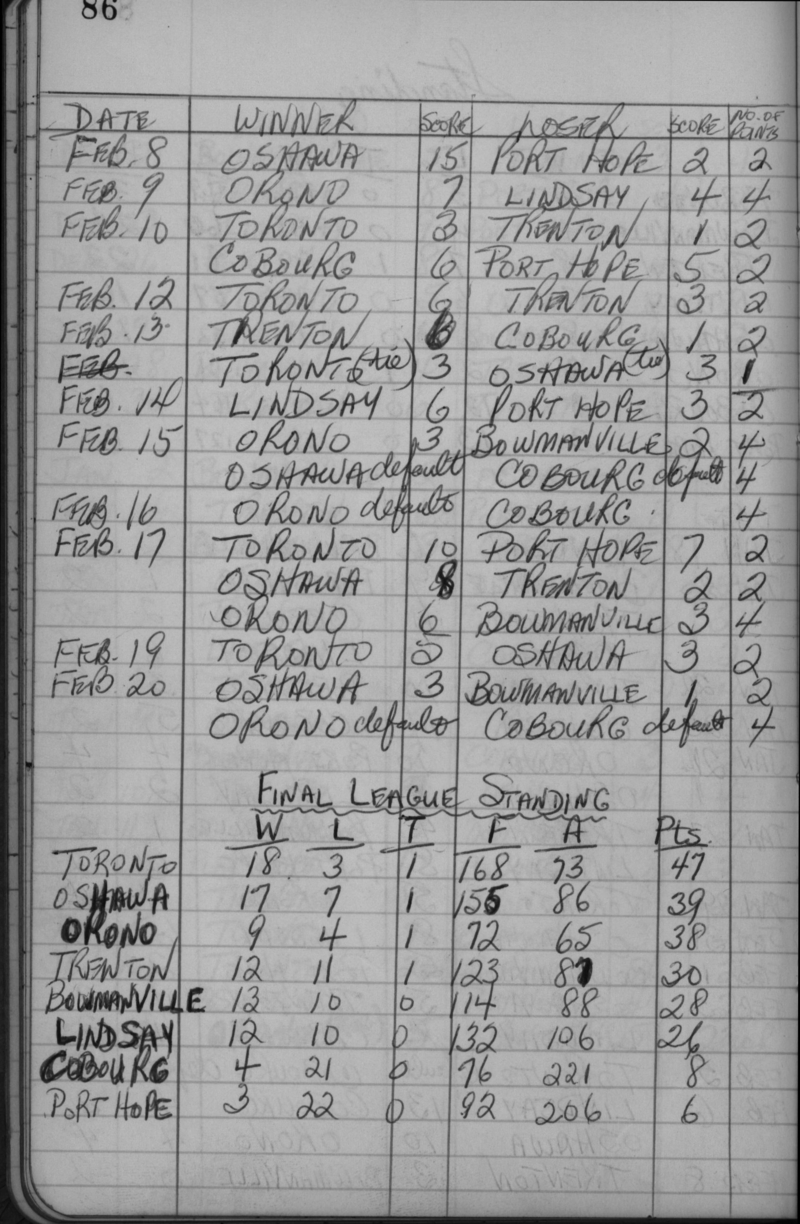 86
DATE WINNER SCORE LOSER SCORE NO. OF POINTS
FEB. 8 OSHAWA 15 PORT HOPE 2 2
FEB. 9 ORONO 7 LINDSAY 4 4
FEB. 10 TORONTO 3 TRENTON 1 2
COBOURG 6 PORT HOPE 5 2
FEB. 12 TORONTO 6 TRENTON 3 2
FEB. 13 TRENTON 6 COBOURG 1 2
FEB. TORONTO (tie) 3 OSHAWA (tie) 3 1
FEB. 14 LINDSAY 6 PORT HOPE 3 2
FEB. 15 ORONO 3 BOWMANVILLE 2 4
OSHAWA default COBOURG default 4
FEB. 16 ORONO default COBOURG 4
FEB. 17 TORONTO 10 PORT HOPE 7 2
OSHAWA 8 TRENTON 2 2
ORONO 6 BOWMANVILLE 3 4
FEB. 19 TORONTO 5 OSHAWA 3 2
FEB 20 OSHAWA 3 BOWMANVILLE 1 2
ORONO default COBOURG default 4
FINAL LEAGUE STANDING
W L T F A Pts.
TORONTO 18 3 1 168 73 47
OSHAWA 17 7 1 155 86 39
ORONO 9 4 1 72 65 38
TRENTON 12 11 1 123 87 30
BOWMANVILLE 13 10 0 114 88 28
LINDSAY 12 10 0 132 106 26
COBOURG 4 21 0 76 221 8
PORT HOPE 3 22 0 92 206 6